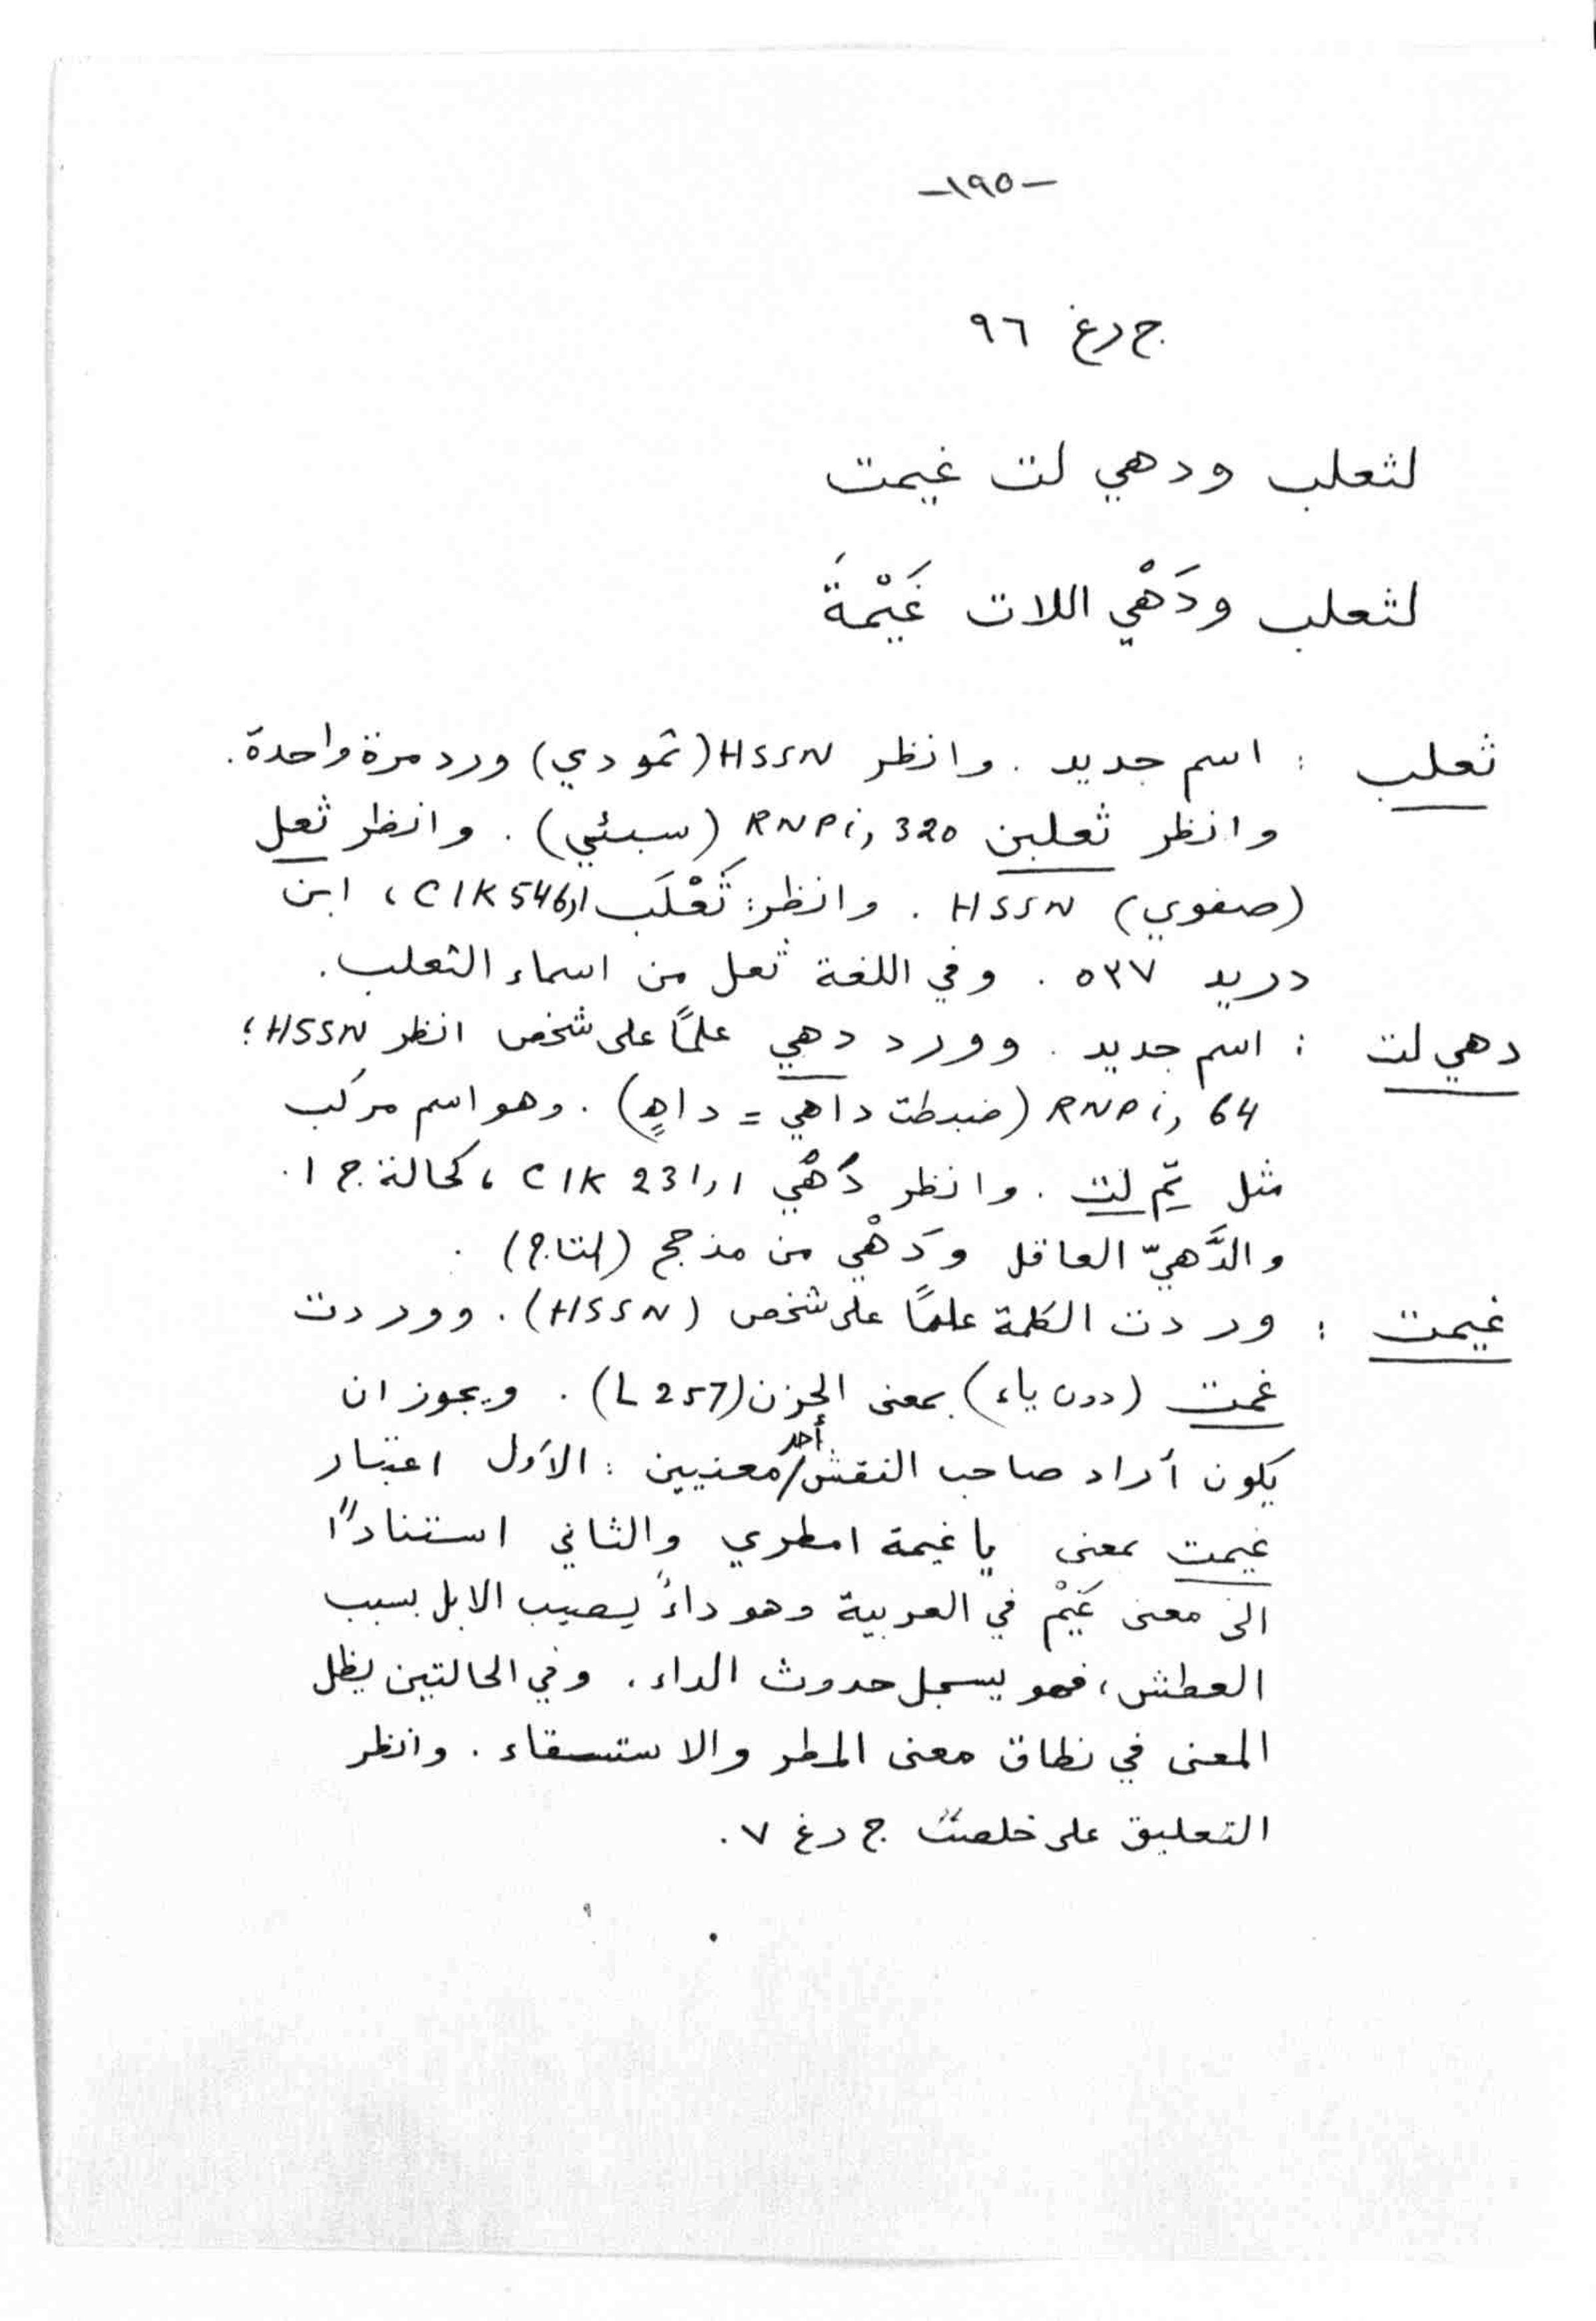 -١٩٥-
ج د غ ٩٦
لثعلب ودهي لت غيمت
لثعلب ودَهْي اللات غَيْمةَ
ثعلب : اسم جديد . وانظر HSSN (ثمودي) ورد مرة واحدة.
وانظر ثعلبن RNP i, 320 (سبئي) . وانظر ثعل
(صفوي) HSSN . وانظر: ثَعْلَب CIK 546,1 ، ابن
دريد ٥٣٧ . وفي اللغة ثعل من اسماء الثعلب.
دهي لت : اسم جديد . وورد دهي علماً على شخص انظر HSSN ؛
RNP i, 64 (ضبطت داهي = داهٍ) . وهو اسم مركب
مثل تيم لت . وانظر دُهْي CIK 231,1 ، كحالة ج ١.
والدَّهيّ العاقل ودَهْي من مذحج (التاج) .
غيمت : وردت الكلمة علماً على شخص (HSSN) . ووردت
غمت (دون ياء) بمعنى الحزن (L 257) . ويجوز ان
يكون أراد صاحب النقش/أحد معنيين : الأول اعتبار
غيمت بمعنى يا غيمة امطري والثاني استناداً
الى معنى غَيْم في العربية وهو داءُ يصيب الابل بسبب
العطش، فهو يسجل حدوث الداء. وفي الحالتين يظل
المعنى في نطاق معنى المطر والاستسقاء . وانظر
التعليق على خلصت ج د غ ٧.